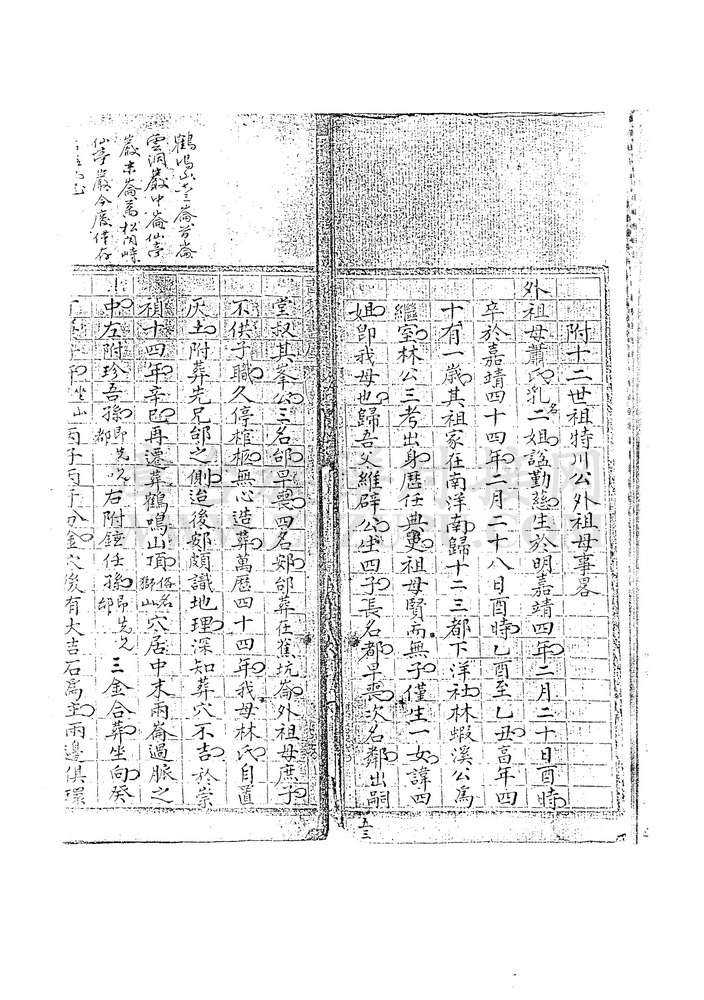 附十二世祖特川公外祖母事畧
外祖母蕭氏乳名二姐諡勤慈生於明嘉靖四年二月二十日酉時
卒於嘉靖四十四年二月二十八日酉時乙酉至乙丑高年四
十有一歲其祖家在南洋南歸十二三都下洋社林蝦溪公為
繼室林公三考出身歷任典吏祖母賢而無子僅生一女諱四
姐即我母也歸吾父維辟公生四子長名都早喪次名鄰出嗣
五三
堂叔其峯公三名邰早喪四名郊邰葬在蕉坑崙外祖母庶子
不供子職久停棺柩無心造葬萬歷四十四年我母林氏自置
灰土附葬先兄邰之側迨後郊頗識地理深知葬穴不吉於崇
禎十四年辛巳再遷葬鶴鳴山頂俗名獅山穴居中末兩崙過脈之
中左附珍吾孫即先兄都右附鉉任孫即先兄邰三金合葬坐向癸
坐山丙子丙午分金穴後有大吉石為主兩邊俱環
鶴鳴山三崙首崙
雲洞巖中崙仙亭
巖末崙為松關峙
仙亭巖今廢僅存